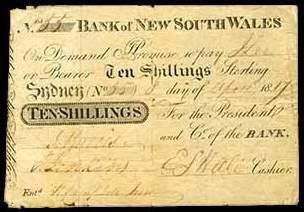 No. 55 BANK of NEW SOUTH WALES
On Demand I Promise to pay
or Bearer Ten Shillings Sterling
Sydney (No. 55) 8 day of April 1817
TEN SHILLINGS For the President
and Co. of the BANK.
E S Hall Cashier.
Entd.